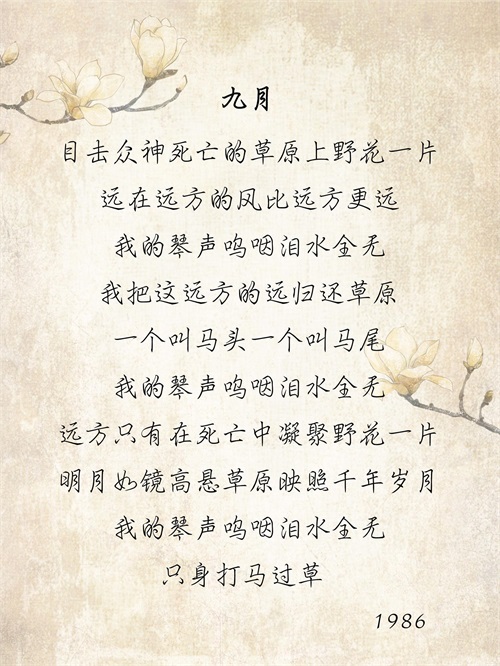 九月
目击众神死亡的草原上野花一片
远在远方的风比远方更远
我的琴声呜咽泪水全无
我把这远方的远归还草原
一个叫马头一个叫马尾
我的琴声呜咽泪水全无
远方只有在死亡中凝聚野花一片
明月如镜高悬草原映照千年岁月
我的琴声呜咽泪水全无
只身打马过草
1986